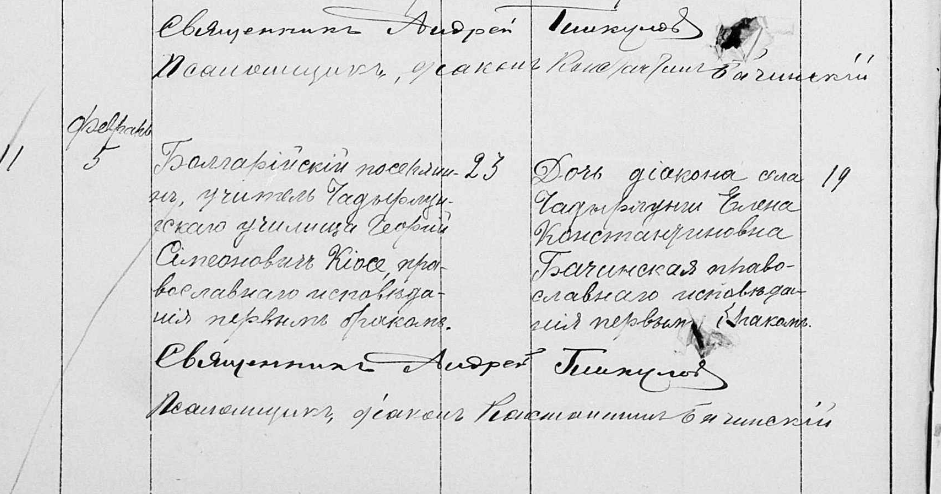 Священникъ Андрей Гинкулов
Псаломщикъ, діаконъ Константинъ Бачинскій
февраль
11
5
Болгарійскій поселян- 23
нъ, учитель Чадырлун-
гскаго училища Георгій
Симеоновичъ Кіосе, пра-
вославнаго исповѣда-
нія первымъ бракомъ.
Дочь діакона села 19
Чадырлунги Елена
Константиновна
Бачинская право-
славнаго исповѣда-
нія первым бракомъ.
Священникъ Андрей Гинкулов
Псаломщикъ, діаконъ Константинъ Бачинскій